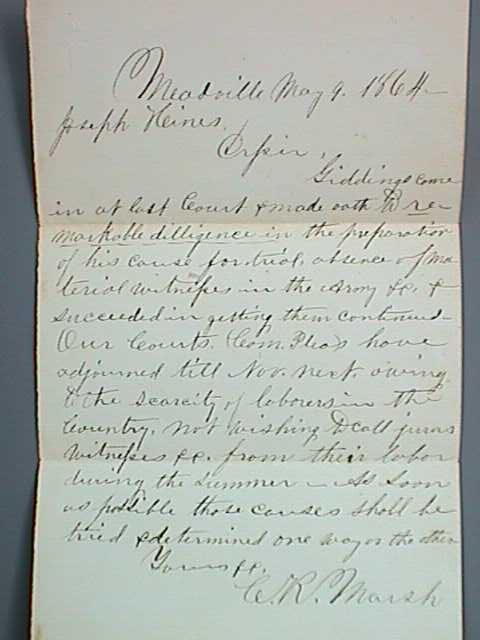 Meadville May 9. 1864
Joseph Heines.
Sir,
Giddings come
in at last Court & made oath to re-
markable dilligence in the preparation
of his cause for trial, absence of ma
terial witneſses in the Army &c. &
succeeded in getting them continued-
Our Courts. Com. Pleas have
adjourned till Nov. next. owing
to the scarcity of laborers in the
Country. not wishing to call jurors
witneſses &c. from their labor
during the summer - As soon
as poſsible those causes shall be
tried & determined one way or the other
Yours &c.
C. R. Marsh